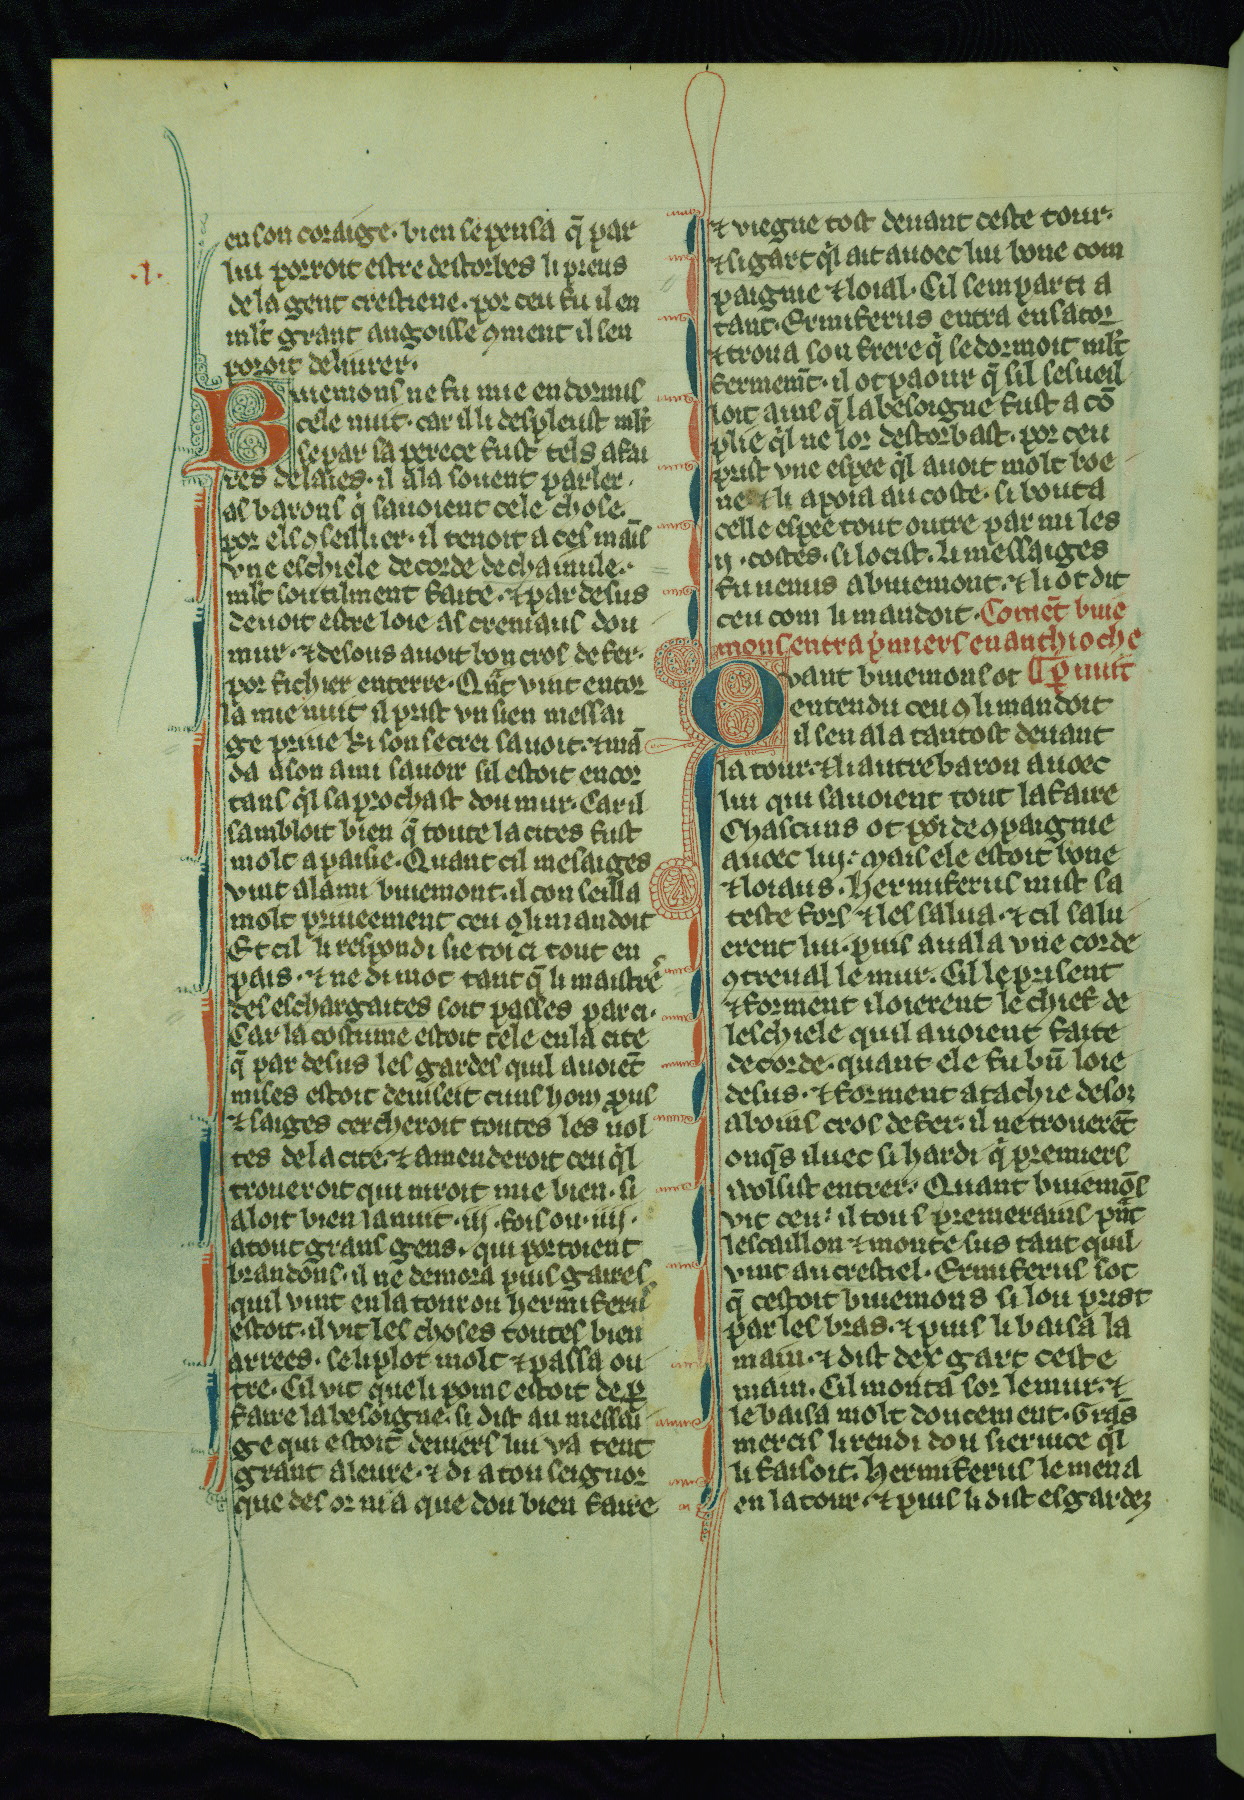 en son coraige. bien se pensa q̄ par
lui porroit estre destorbes li preus
de la gent crestiene. por ceu fu il en
ml't grant angoisse ꝯment il sen
poroit deliurer.
.l.
Buiemons ne fu mie endormis
cele nuit. car il li despleust ml't
se par sa perece fust tels afai
res delaies. il ala souent parler
as barons q̇ sauoient cele chose.
por els ꝯseillier. il tenoit a ces mais
vne eschiele de corde de chainule.
ml't soutilment faite. ⁊ par desus
deuoit estre loie as creniaus dou
mur. ⁊ desous auoit bon cros de fer.
por fichier enterre. Qn̄t vint entor
la mie nuit il prist vn sien messai
ge priue ki son secrei sauoit. ⁊ mā
da a son ami sauoir sil estoit encor
tans q̇l saprochast dou mur. Car il
sambloit bien q̄ toute la cites fust
molt apaisie. Quant cil mesaiges
vint a lami buiemont. il conseilla
molt priueement ceu ꝯ li mandoit
Et cil li respondi sie toi ci tout en
pais. ⁊ ne di mot tant q̄ li maistre
des eschargaites soit passes par ci.
Car la costume estoit tele en la cite
q̄ par desus les gardes quil auoiēt
mises estoit deuiseit cuns hom p̱us
⁊ saiges cercheroit toutes les uol
tes de la cite. ⁊ amenderoit ceu q̇l
troueroit qui niroit mie bien. si
aloit bien la nuit .iij. fois ou .iiij.
a tout grans gens. qui portoient
brandons. il ne demora puis gaires
quil vint en la tour ou hermiferus
estoit. il vit les choses toutes bien
arrees. se li plot molt ⁊ passa ou
tre. Cil vit que li poins estoit de ꝑ
faire la besoigne. si dist au messai
ge qui estoit deuers lui va tent
grant aleure. ⁊ di a tou seignor
que des or nia que dou bien faire
⁊ viegne tost deuant ceste tour.
⁊ si gart q̇l ait auoec lui bone com
paignie ⁊ loial. Cil sem parti a
tant. Ermiferus entra en sa tor
⁊ troua son frere q̇ se dormoit ml't
fermem̄t. il ot paour q̄ sil sesueil
loit ains q̄ la besoigne fust a cō
plie q̇l ne lor destorbast. por ceu
prist vne espee q̇l auoit molt boe
ne ⁊ li apoia au coste. si bouta
celle espee tout outre par mi les
ij. costes. si locist. li messaiges
fu uenus a buiemont. ⁊ li ot dit
ceu com li mandoit. Comēt buie
mons entra p̱miers en anthioche
Quant buiemons ot ¶ ꝑ nuit
entendu ceu ꝯ li mandoit
il sen ala tantost deuant
la tour. ⁊ li autre baron auoec
lui qui sauoient tout lafaire
Chascuns ot poi de ꝯpaignie
auoec lui: mais ele estoit bone
⁊ loiaus. hermiferus mist sa
teste fors ⁊ les salua. ⁊ cil salu
erent lui. puis auala vne corde
ꝯtreual le mur. Cil le prisent
⁊ forment i loierent le chief de
leschiele quil auoient faite
de corde. quant ele fu bn̄ loie
desus. ⁊ forment atachie desoz
a bons cros de fer. il ne trouerēt
onq̄s iluec si hardi q̇ premiers
wolsist entrer. Quant buiemōs
vit ceu: il tous premerains pn̄t
lescaillon ⁊ monte sus tant quil
vint au crestiel. Ermiferus sot
q̄ cestoit buiemons si lou prist
par les bras. ⁊ puis li baisa la
main. ⁊ dist dex gart ceste
main. Cil monta sor le mur. ⁊
le baisa molt doucement. Gras
mercis li rendi dou sieruice q̇l
li faisoit. Hermiferus le mena
en la tour. ⁊ puis li dist esgardez